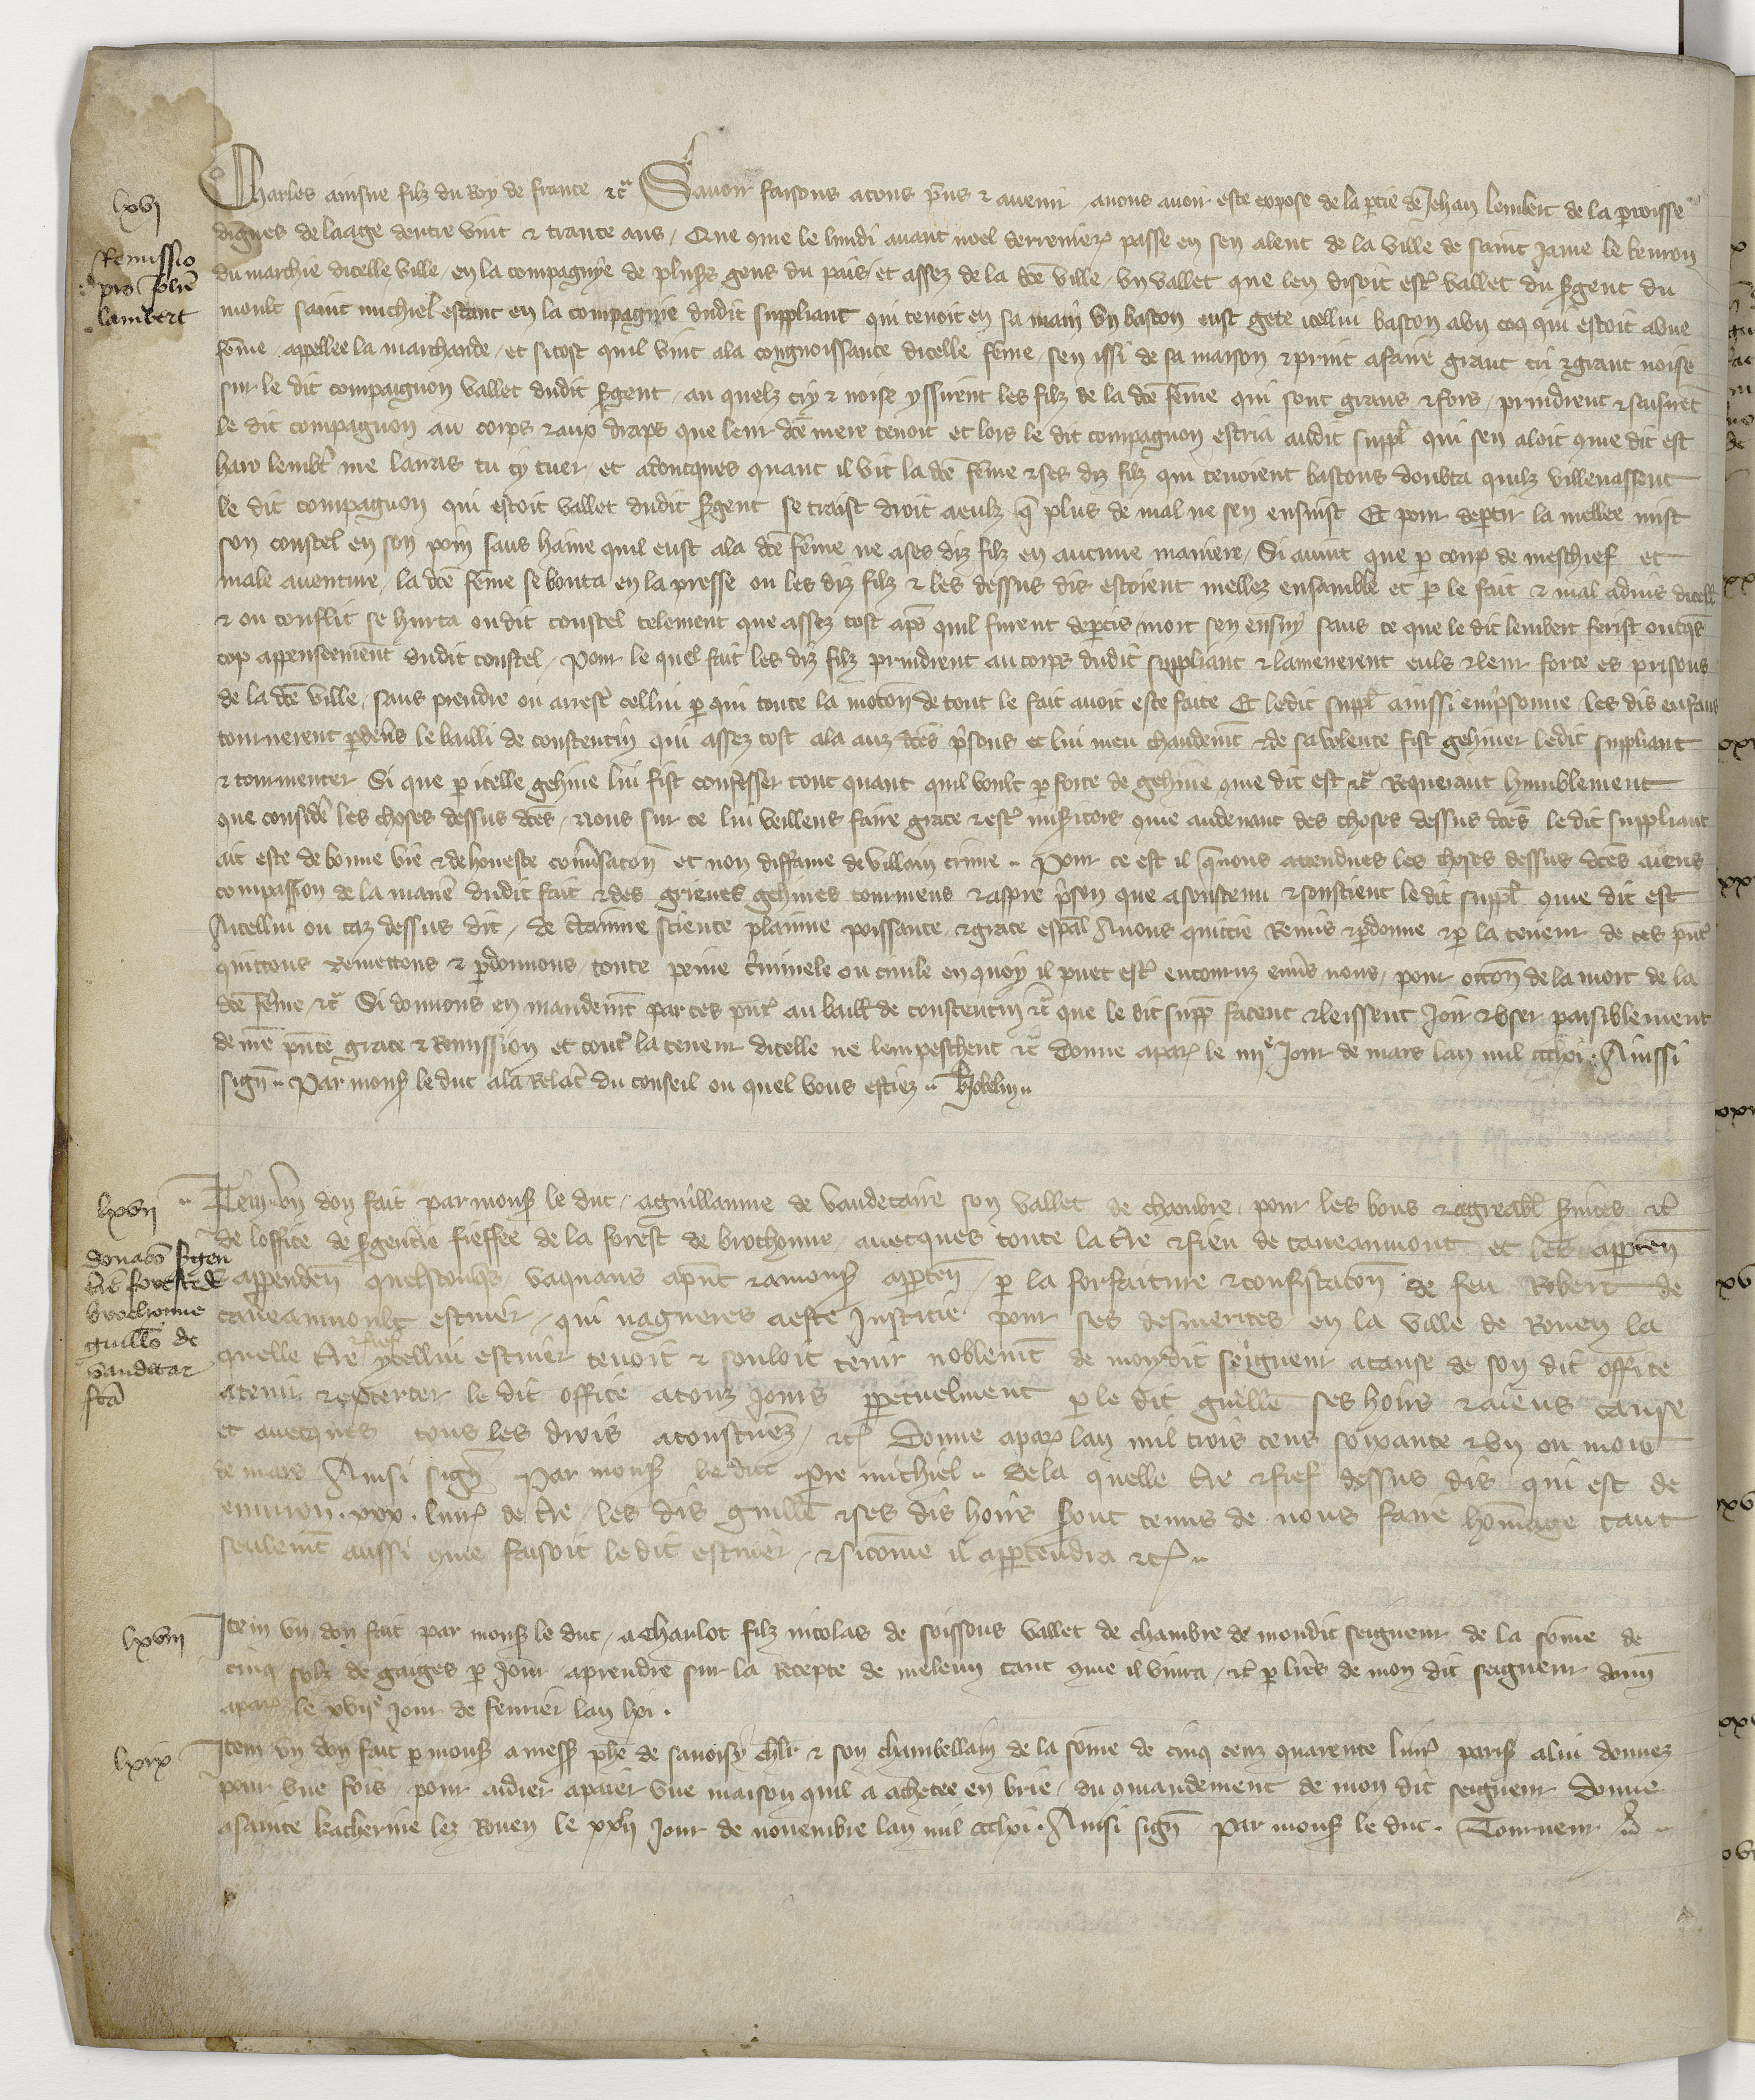 lxvj
Remissio
pro Johe
lambert
Charles ainsne filz du Roy de france etc Savoir faisons a tous p̃ns et avenir avons avoir este expose de la partie de Jehan lembert de la parroisse
digues de laage dentre vint et trante ans / Que cõme le lundi avant noel derrenier passe en sen alent de la ville de saint Jame le bevron
du marchie dicelle ville / en la compagnye de plus̃s gens du pais / et assez de la dc̃e ville / un vallet que len disoit est̃ vallet du s̃gent du
mont saint michiel estant en la compagnie dudit suppliant qui tenoit en sa main un baston eust gete icellui baston a un coq qui estoit a une
fẽme appellee la marchande / et si tost quil vint a la congnoissance dicelle fẽme / sen issi de sa maison et print a faire grant cri et grant noise
sur le dit compaignon vallet dudit s̃gent / au quelz cry et noise yssirent les filz de la dc̃e fẽme qui sont grans et fors / prindrent et saisirẽt
le dit compagnon au corps et aux draps que leur dc̃e mere tenoit et lors le dit compagnon escria audit suppl̃ qui sen aloit cõme dit est
haro lemb̃t me lairas tu cy tuer / et adoncques quant il vit la dc̃e fẽme et ses diz filz qui tenoient bastons doubta quilz villenassent
le dit compagnon qui estoit vallet dudit s̃gent se traist droit a eulz q̃ plus de mal ne sen ensuist Et pour dep̃tir la mellee mist
son coustel en son poin sans haine quil eust a la dc̃e fẽme ne a ses diz filz en aucune maniere / Si avint que p̃ coup de meschief et
male aventure / la dc̃e fẽme se bouta en la presse ou les diz filz et les dessus dis estoient mellez ensamble et p̃ le fait et mal advis dicell̃
et ou conflit se hurta ou dit coustel telement que assez tost ap̃s quil furent dep̃tis mort sen ensuy sans ce que le dit lembert ferist oncq̃s
cop appenseemẽt dudit coustel / Pour le quel fait les diz filz prindrent au corps dudit suppliant et lamenerent euls et leur force es prisons
de la dc̃e ville / sans prendre ou arrest̃ cellui p̃ qui toute la mocõn de tout le fait avoit este faite Et ledit suppl̃ ainssi emp̃sonne les dis enfans
tournerent p̃ devs̃ le bailli de coustentin qui assez tost ala auz dc̃es p̃sons et lui meu chaudemẽt et de sa volente fist gehiner ledit suppliant
et tourmenter Si que p̃ icelle gehine lui fist confesser tout quant quil voult p̃ force de gehine cõme dit est etc̃ Requerant humblement
que considẽ les choses dessus dc̃es / nous sur ce lui veillens faire grace et est̃ mis̃icors cõme au devant des choses dessus dc̃es le dit suppliant
ait este de bonne vie et de honeste convs̃acõn et non diffame de villain crime .. Pour ce est il q̃ nous attendues les choses dessus dc̃es aiens
compassion de la maniẽ dudit fait et des grieves gehines tourmens et aspre p̃son que a soustenu et soustient le dit suppl̃ cõme dit est
A icellui ou caz dessus dit / de c̃taine science plaine poissance et grace esp̃al Avons quittie Remis et p̃donne et p̃ la teneur de ces p̃nt̃
quittons Remettons et p̃donnons / toute peine c̃iminele ou civile en quoy il puet est̃ encouruz envs̃ nous / pour occõn de la mort de la
dc̃e fẽme / etc̃ Si donnons en mandemẽt par ces p̃nt̃ au baill̃ de coustentin etc̃ que le dit supp̃ facent et leissent Joir et user paisiblement
de nr̃e p̃nte grace et Remission et cont̃ la teneur dicelle ne lempeschent etc̃ Donne a par̃ le iiije Jour de mars lan mil ccclxj. Ainssi
sign̄ .. Par mons̃ le duc a la Relac̃ du conseil ou quel vous estiez ..
lxvij
Item un don fait par mons̃ le duc / a guillaume de vaudetaire son vallet de chambre / pour les bons et agreabl̃ s̃vices etc̃
donacõ s̃gen
brochonne
guill̃o de
vaudetar
fc̃a
de loffice de s̃genterie fieffee de la forest de brothonne / avecques toute la t̃re et fieu de caveaumont et les apparten̄
appenden̄ quelsconq̃s / vaquans a p̃nt et a mons̃ apparten̄ / p̃ la forfaiture et confiscacõn de feu Robert de
caveaumont escuier / qui nagueres a este Justicie pour ses desmerites en la ville de Rouen la
quelle t̃re et fief ycellui escuier tenoit et souloit tenir noblemẽt de mondit seigneur a cause de son dit office
a tenir et exercer le dit office a touz jours p̃petuelment p̃ le dit guillẽ ses hoirs et aiens cause
et avecques tous les drois acoustumez / etc̃ Donne a par̃ lan mil trois cens soixante et un ou mois
de mars Ainsi sign̄ Par mons̃ le duc .. P̃re michiel .. De la quelle t̃re et fief dessus dis qui est de
environ . xxx . livr̃ de t̃re / les dis guillẽ et ses dis hoirs sont tenus de nous faire hõmage tant
seulemẽt aussi cõme faisoit le dit escuier / et si cõme il appartendra etc̃ ..
lxviij
Item un don fait par mons̃ le duc / a Charlot filz nicolas de soissons vallet de chambre de mondit seigneur de la sõme de
cinq solz de gaiges p̃ Jour a prendre sur la Recepte de meleun tant cõme il vivra / etc̃ p̃ lr̃es de mon dit seigneur donn̄
a par̃ le xvije Jour de fevrier lan lxj .
lxix
Item un don fait p̃ mons̃ a mess̃ ph̃e de savoisy chlr̃ et son chambellain de la sõme de cinq cenz quarente livr̃ paris̃ a lui donnez
pour une fois / pour aidier a paier une maison quil a achetee en brie / du cõmandement de mon dit seigneur Donne
a sainte katherine lez Rouen le xxvij Jour de novembre lan mil ccclxj. Ainsi sign̄ Par mons̃ le duc . Tourneur